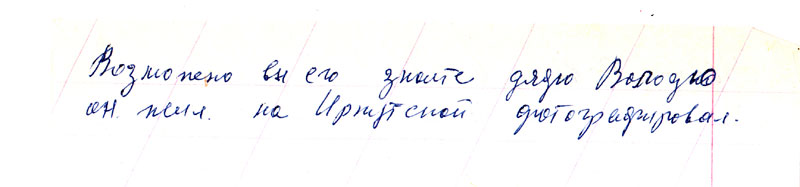 Возможено вы его знаите дядю Володю
он жил. на Иркутской фотографировал.